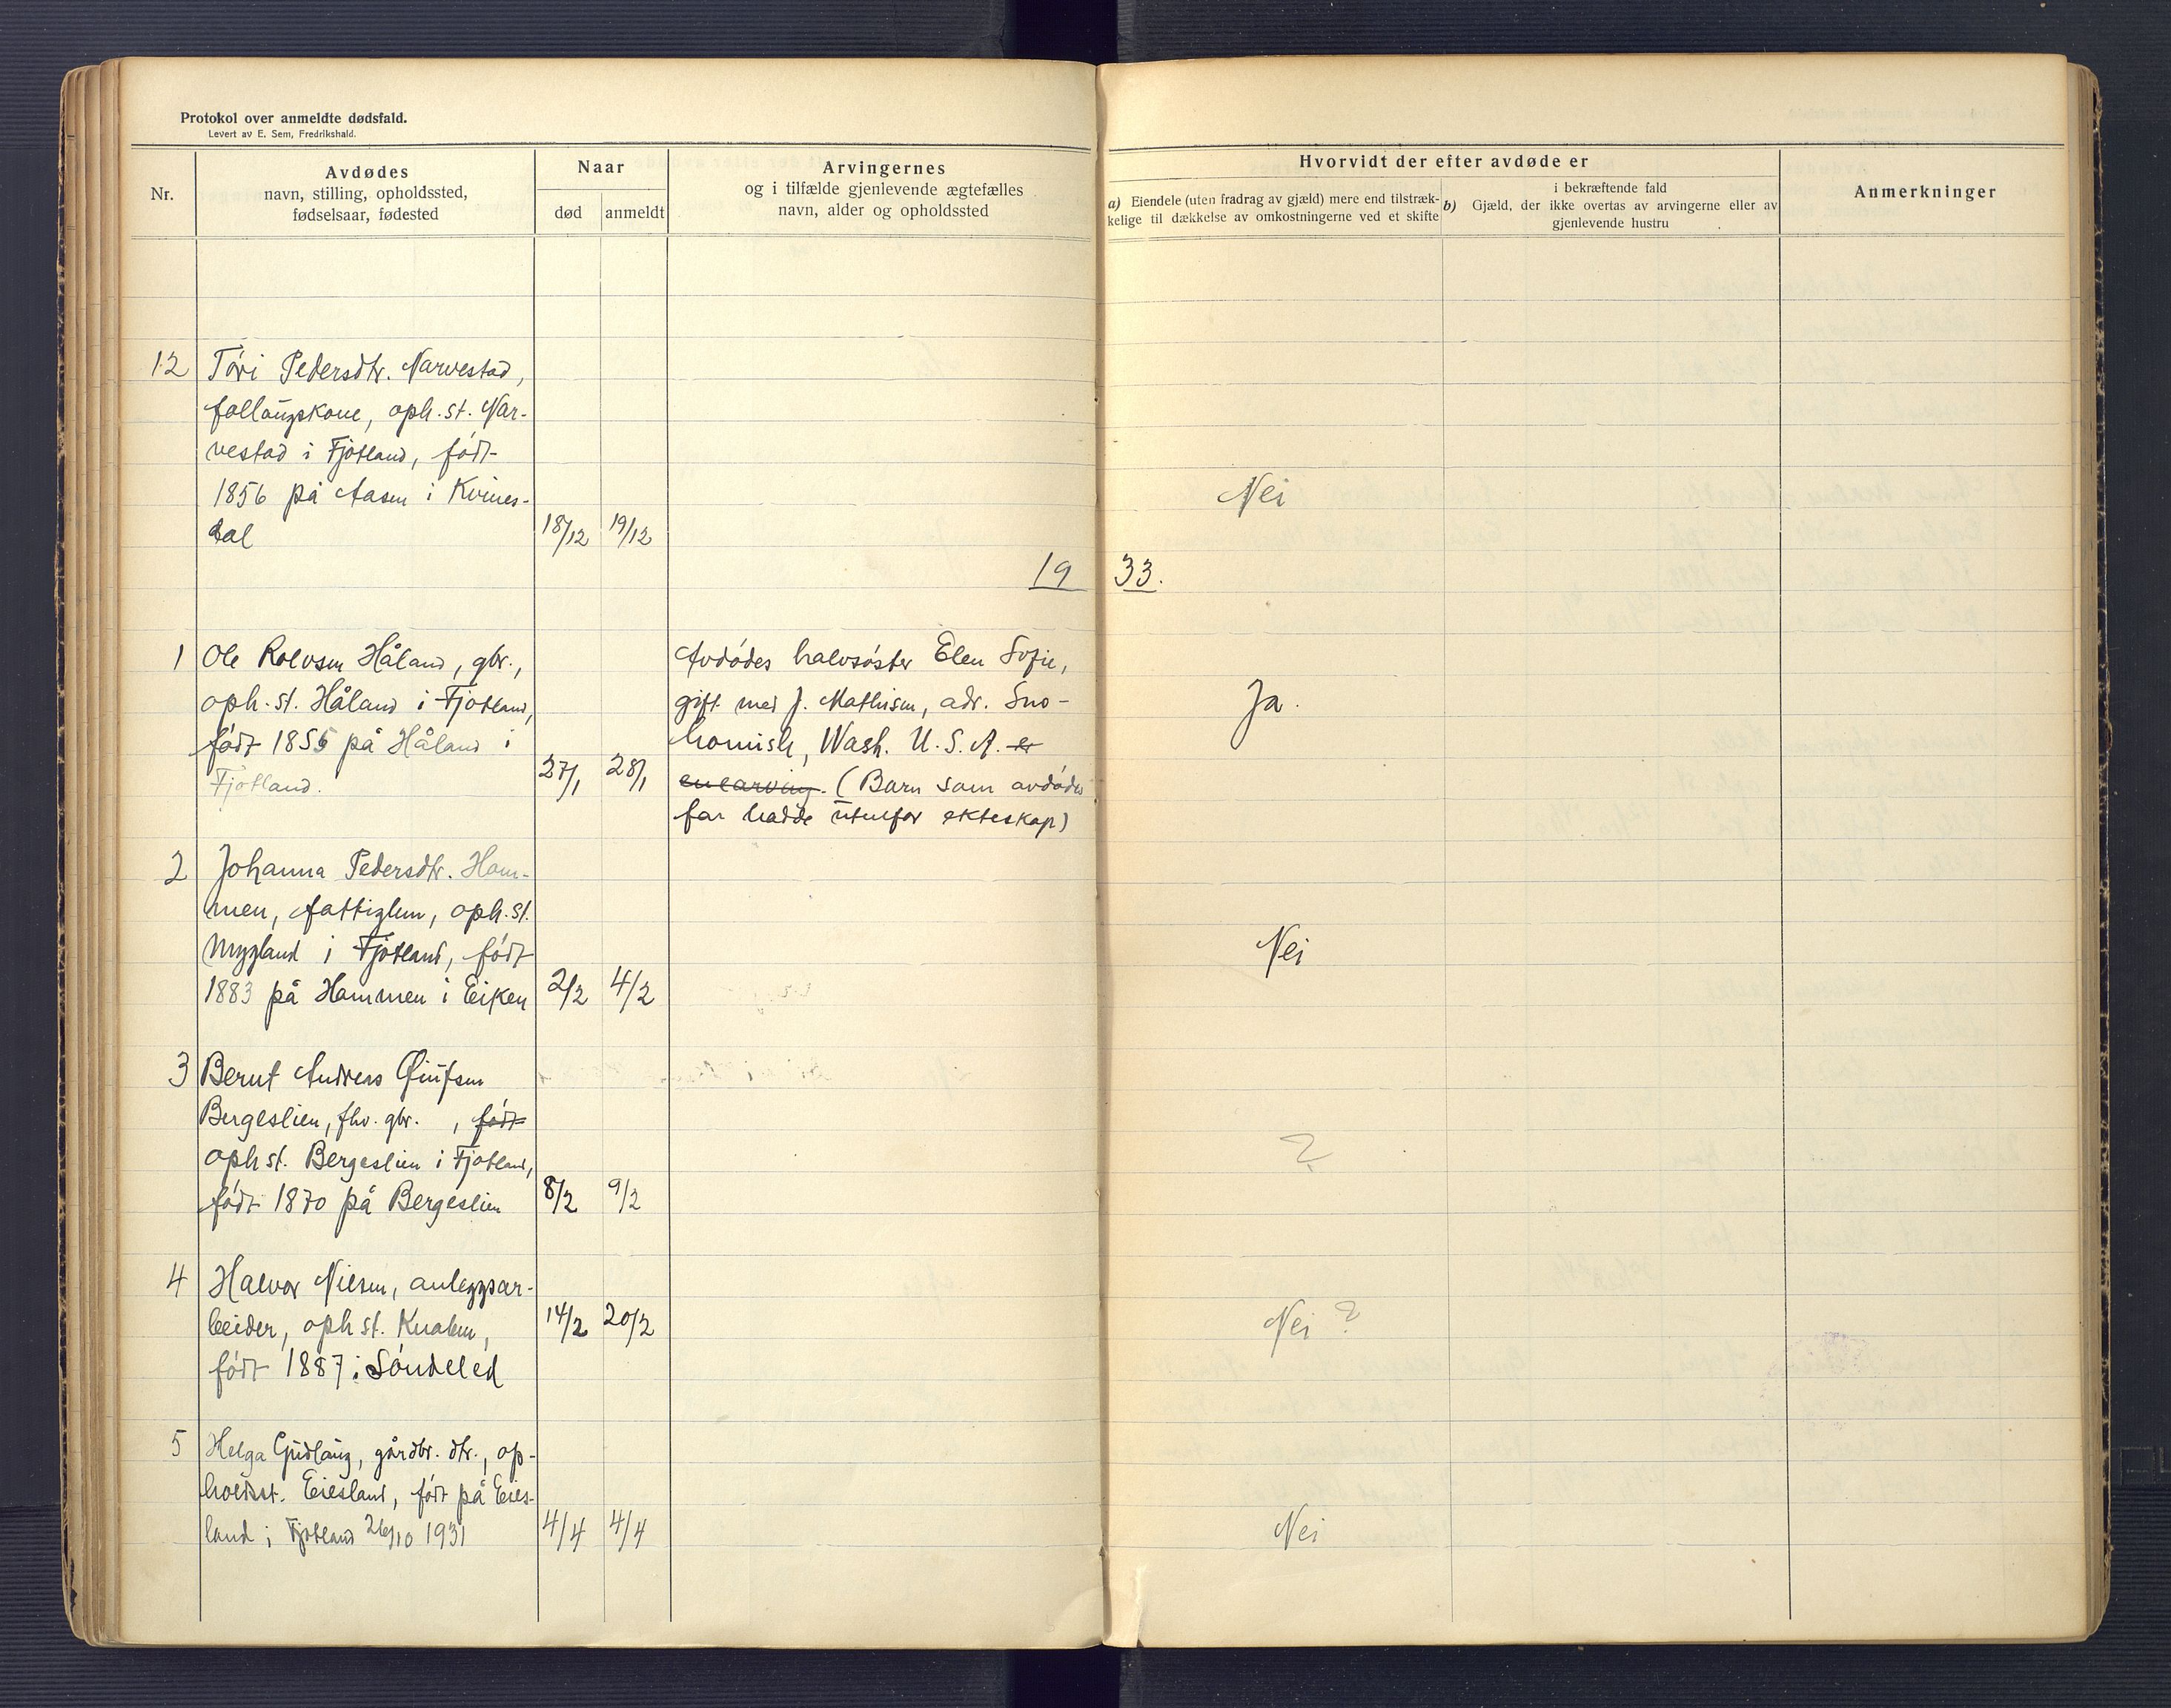 Protokol over anmeldte dødsfald.
Levert av E. Sem, Fredrikshald.
Nr.
Avdødes
navn, stilling, opholdssted,
fødselsaar, fødested
Naar
død
anmeldt
Arvingernes
og i tilfælde gjenlevende ægtefælles
navn, alder og opholdssted
Hvorvidt der efter avdøde er
a) Eiendele (uten fradrag av gjæld) mere end tilstræk-
kelige til dækkelse av omkostningerne ved et skifte
i bekræftende fald
b) Gjæld, der ikke overtas av arvingerne eller av
gjenlevende hustru
Anmerkninger
12 Töri Pedersdtr. Narvestad,
follaugskone, oph. st. Nar-
vestad i Fjotland, født
1856 på Aasen i Kvines-
dal 18/12 19/12
Nei
19 33.
1 Ole Rolvsen Håland, gbr.,
oph. st. Håland i Fjotland,
født 1855 på Håland i
Fjotland. 27/1 28/1
Avdødes halvsøster Elen Sofie,
gift med J. Mathisen, adr. Sno-
homish, Wash. U.S.A. er
enearving. (Barn som avdødes
far hadde utenfor ekteskap)
Ja.
2 Johanna Pedersdtr. Ham-
men, fattiglem, oph. st.
Mygland i Fjotland, født
1883 på Hammen i Eiken 2/2 4/2
Nei
3 Bernt Andreas
Bergeslien, fhv. gbr. , født
oph st. Bergeslien i Fjotland,
født 1870 på Bergeslien 8/2 9/2
?
4 Halvor Nilsen, anleggsar-
beider, oph st. Knaben,
født 1887 i Søndeled
14/2 20/2
Nei ?
5 Helga Gudlaug, gårdbr. dtr., op-
holdsst. Eiesland, født på Eies-
land i Fjotland 26/10 1931 4/4 4/4
Nei